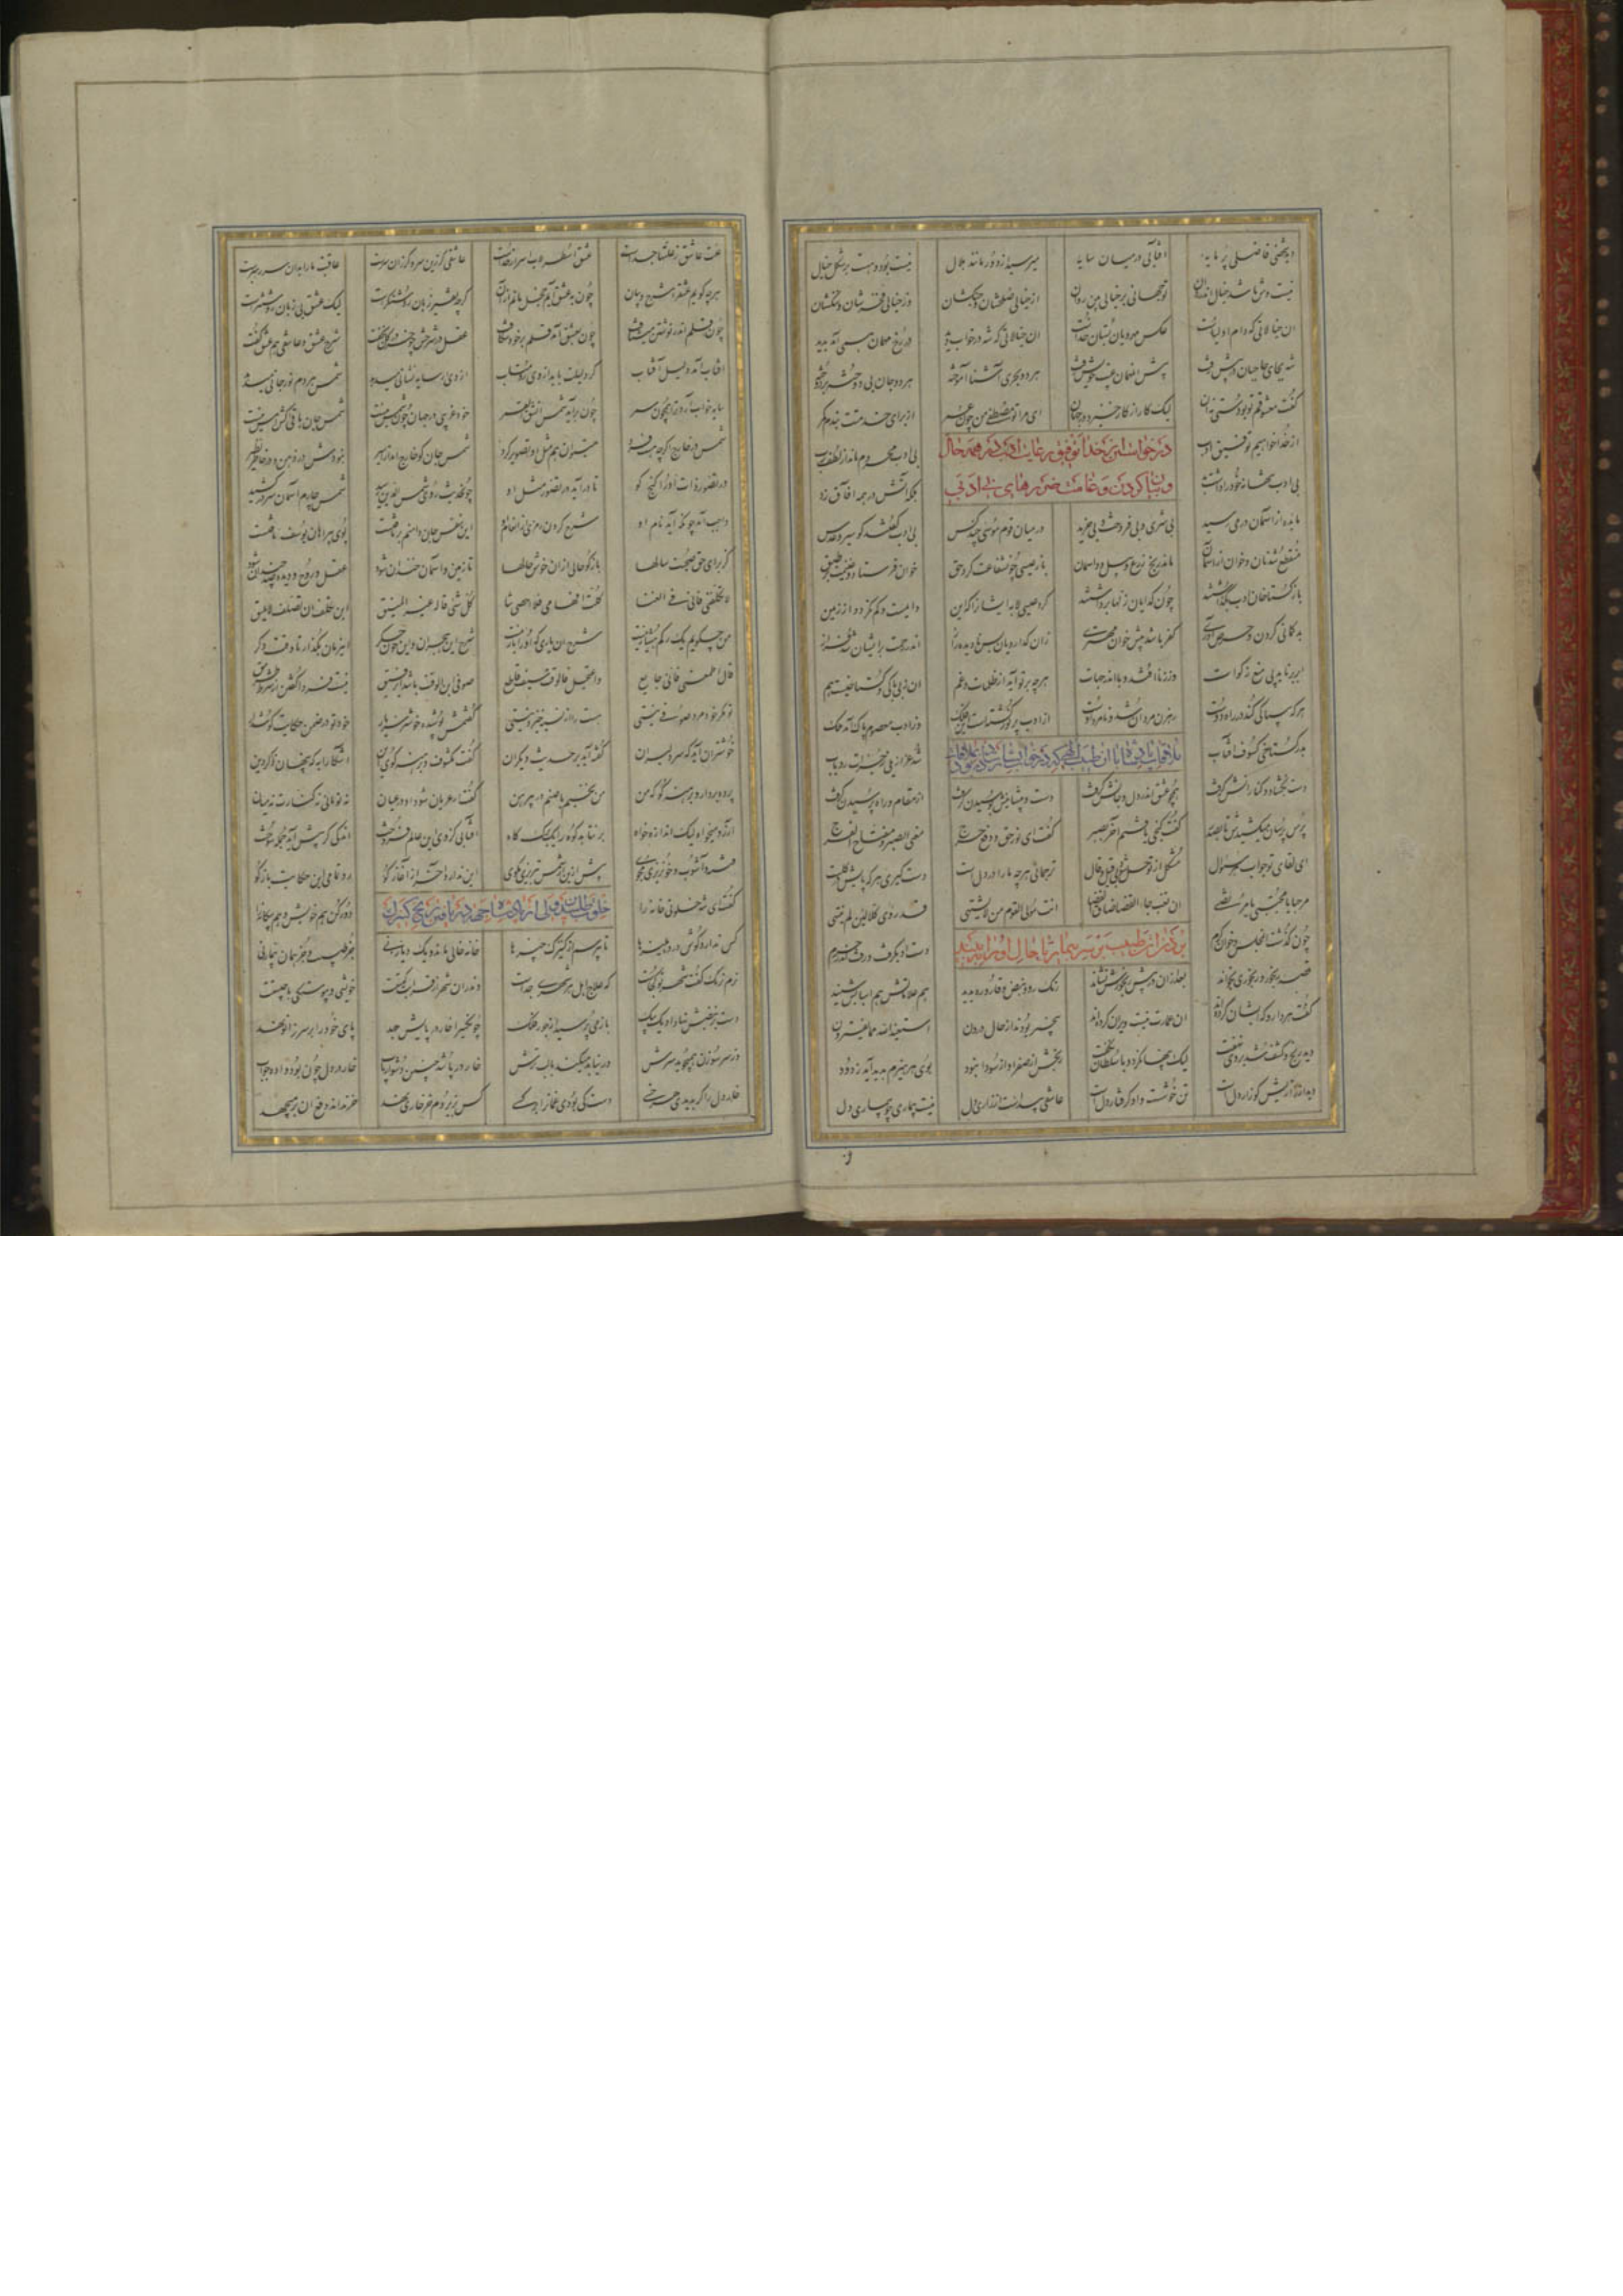 دید شخصی فاضلی پر مایه افتابی درمیان سایه میرسید از دور مانند هلال نیست بود و هست بر شکل خیال
نیست وش باشد خیال اندر روان تو جهانی بر خیالی بین روان از خیالی صلحشان و جنگشان وز خیالی فخرشان و ننگشان
ان خیالاتی که دام اولیاست عکس مهرویان بستان خداست ان خیالاتی که شه در خواب دید در رخ مهمان همی آمد پدید
شه بجای حاجبان در پیش رفت پیش ان مهمان غیب خویش رفت هر دو بحری آشنا آموخته هر دو جان بی دوختن بر دوخته
گفت معشوقم تو بودستی نه ان لیک کار از کار خیزد در جهان ای مرا تو مصطفی من چون عمر از برای خدمتت بندم کمر
از خدا خواهیم توفیق ادب درخواستن از خدا توفیق رعایت ادب در همه حال بی ادب محروم ماند از لطف رب
بی ادب تنها نه خود را داشت بد و بیان کردن وخامت ضررهای بی ادبی بلکه آتش در همه افاق زد
مایده از اسمان در می رسید بی شری و بی فروخت و بی خرید در میان قوم موسی چند کس بی ادب گفتند کو سیر و عدس
منقطع شد نان و خوان از اسمان ماند رنج زرع و بیل و داسمان باز عیسی چون شفاعت کرد حق خوان فرستاد و غنیمت بر طبق
باز گستاخان ادب بگذاشتند چون گدایان زلها برداشتند کرد عیسی لابه ایشانرا که این دایمست و کم نگردد از زمین
بد گمانی کردن و حرص آوری کفر باشد پیش خوان مهتری زان گدارویان نادیده ز از اندر رحمت بر ایشان شد فراز
ابر ناید از پی منع زکوات وز زنا افتد وبا اندر جهات هرچه بر تو آید از ظلمات و غم ان ز بی باکی و گستاخیست هم
هرکه بی باکی کند در راه دوست رهزن مردان شد و نامرد اوست از ادب پر نور گشتست این فلک وز ادب معصوم و پاک آمد ملک
بد ز گستاخی کسوف افتاب ملاقات پادشاه با ان طبیب الهی که در خواب بشارت داده بودند شد عزازیلی ز جرات رد باب
دست بگشاد و کنارانش گرفت همچو عشق اندر دل و جانش گرفت دست و پیشانیش بوسیدن گرفت از مقام و راه پرسیدن گرفت
پرس پرسان میکشیدش تا بصدر گفت گنجی یافتم آخر بصبر گفت ای نور حق و دفع حرج معنی الصبر مفتاح الفرج
ای لقای تو جواب هر سوال مشکل از تو حل شود بی قیل و قال ترجمانی هرچه ما را در دل است دست گیری هر که پایش در گلست
مرحبا یا مجتبی یا مرتضی ان تغب جاء القضا ضاق الفضا انت مولی القوم من لا یشتهی قد ردی کلا لئن لم ینتهی
چون گذشت ان مجلس و خوان کرم بردن ان طبیب بر سر بیمار تا حال او را ببیند دست او بگرفت و برد اندر حرم
قصه رنجور و رنجوری بخواند بعد از ان در پیش رنجورش نشاند رنگ رو و نبض و قاروره بدید هم علاماتش هم اسبابش شنید
گفت هر دارو که ایشان کرده اند ان عمارت نیست ویران کرده اند بیخبر بودند از حال درون استعیذ الله مما یفترون
دید رنج و کشف شد بروی نهفت لیک پنهان کرد و با سلطان نگفت رنجش از صفرا و از سودا نبود بوی هر هیزم پدید آید ز دود
دید از زاریش کو زار دل است تن خوشست و او گرفتار دل است عاشقی پیداست از زاری دل نیست بیماری چو بیماری دل
علت عاشق ز علتها جداست عشق اصطرلاب اسرار خداست عاشقی گر زین سر و گر زان سرست عاقبت ما را بدان سر رهبرست
هرچه گویم عشق را شرح و بیان چون به عشق آیم خجل مانم از آن گرچه تفسیر زبان روشنگرست لیک عشق بی زبان روشنترست
چون قلم اندر نوشتن میشتافت چون بعشق آمد قلم بر خود شکافت عقل در شرحش چو خر در گل بخفت شرح عشق و عاشقی هم عشق گفت
افتاب آمد دلیل آفتاب گر دلیلت باید از وی رو متاب از وی ار سایه نشانی میدهد شمس هر دم نور جانی میدهد
سایه خواب آرد ترا همچون سمر چون برآید شمس انشق القمر خود غریبی در جهان چون شمس نیست شمس جان باقی کش امس نیست
شمس در خارج اگرچه هست فرد میتوان هم مثل او تصویر کرد شمس جان کو خارج امد از اثیر نبودش در ذهن و در خارج نظیر
در تصور ذات او را گنج کو تا درآید در تصور مثل او چون حدیث روی شمس الدین رسید شمس چارم اسمان سر در کشید
واجب آمد چونکه آمد نام او شرح کردن رمزی از انعام او این نفس جان دامنم بر تافتست بوی پیراهان یوسف یافتست
کز برای حق صحبت سالها بازگو حالی از ان خوش حالها تا زمین و اسمان خندان شود عقل و روح و دیده صد چندان شود
لا تکلفنی فانی فی الفنا کلت افهامی فلا احصی ثنا کل شیء قاله غیر المفیق ان تکلف او تصلف لا یلیق
من چه گویم یک رگم هشیار نیست شرح ان یاری که او را یار نیست شرح این هجران و این خون جگر این زمان بگذار تا وقت دگر
قال اطعمنی فانی جایع واعتجل فالوقت سیف قاطع صوفی ابن الوقت باشد ای رفیق نیست فردا گفتن از شرط طریق
تو مگر خود مرد صوفی نیستی هست را از نسیه خیزد نیستی گفتمش پوشیده خوشتر سر یار خود تو در ضمن حکایت گوش دار
خوشتر ان آید که سر دلبران گفته آید در حدیث دیگران گفت مکشوف و برهنه گوی این آشکارا به که پنهان ذکر دین
پرده بردار و برهنه گو که من می نخسبم با صنم در پیرهن گفتم ار عریان شود او در عیان نه تو مانی نه کنارت نه میان
آرزو میخواه لیک اندازه خواه بر نتابد کوه را یک برگ کاه افتابی کز وی این عالم فروخت اندکی گر پیش آید جمله سوخت
فتنه و آشوب و خونریزی مجوی بیش ازین از شمس تبریزی مگوی این ندارد آخر از آغاز گو رو تمامی این حکایت بازگو
گفت ای شه خلوتی کن خانه را خلوت طلبیدن ان ولی از پادشاه جهت دریافتن رنج کنیزک دور کن هم خویش و هم بیگانه را
کس ندارد گوش در دهلیزها تا بپرسم از کنیزک چیزها خانه خالی ماند و یک دیار نی جز طبیب و جز همان بیمار نی
نرم نرمک گفت شهر تو کجاست که علاج اهل هر شهری جداست و اندران شهر از قرابت کیستت خویشی و پیوستگی با چیستت
دست بر نبضش نهاد و یک بیک باز می پرسید از جور فلک چون کسی را خار در پایش جهد پای خود را بر سر زانو نهد
وز سر سوزن همی جوید سرش ور نیابد میکند با لب ترش خار در پا شد چنین دشوار یاب خار در دل چون بود وا ده جواب
خار دل را گر بدیدی هر خسی دست کی بودی غمان را بر کسی کس بزیر دم خر خاری نهد خر نداند دفع ان بر میجهد